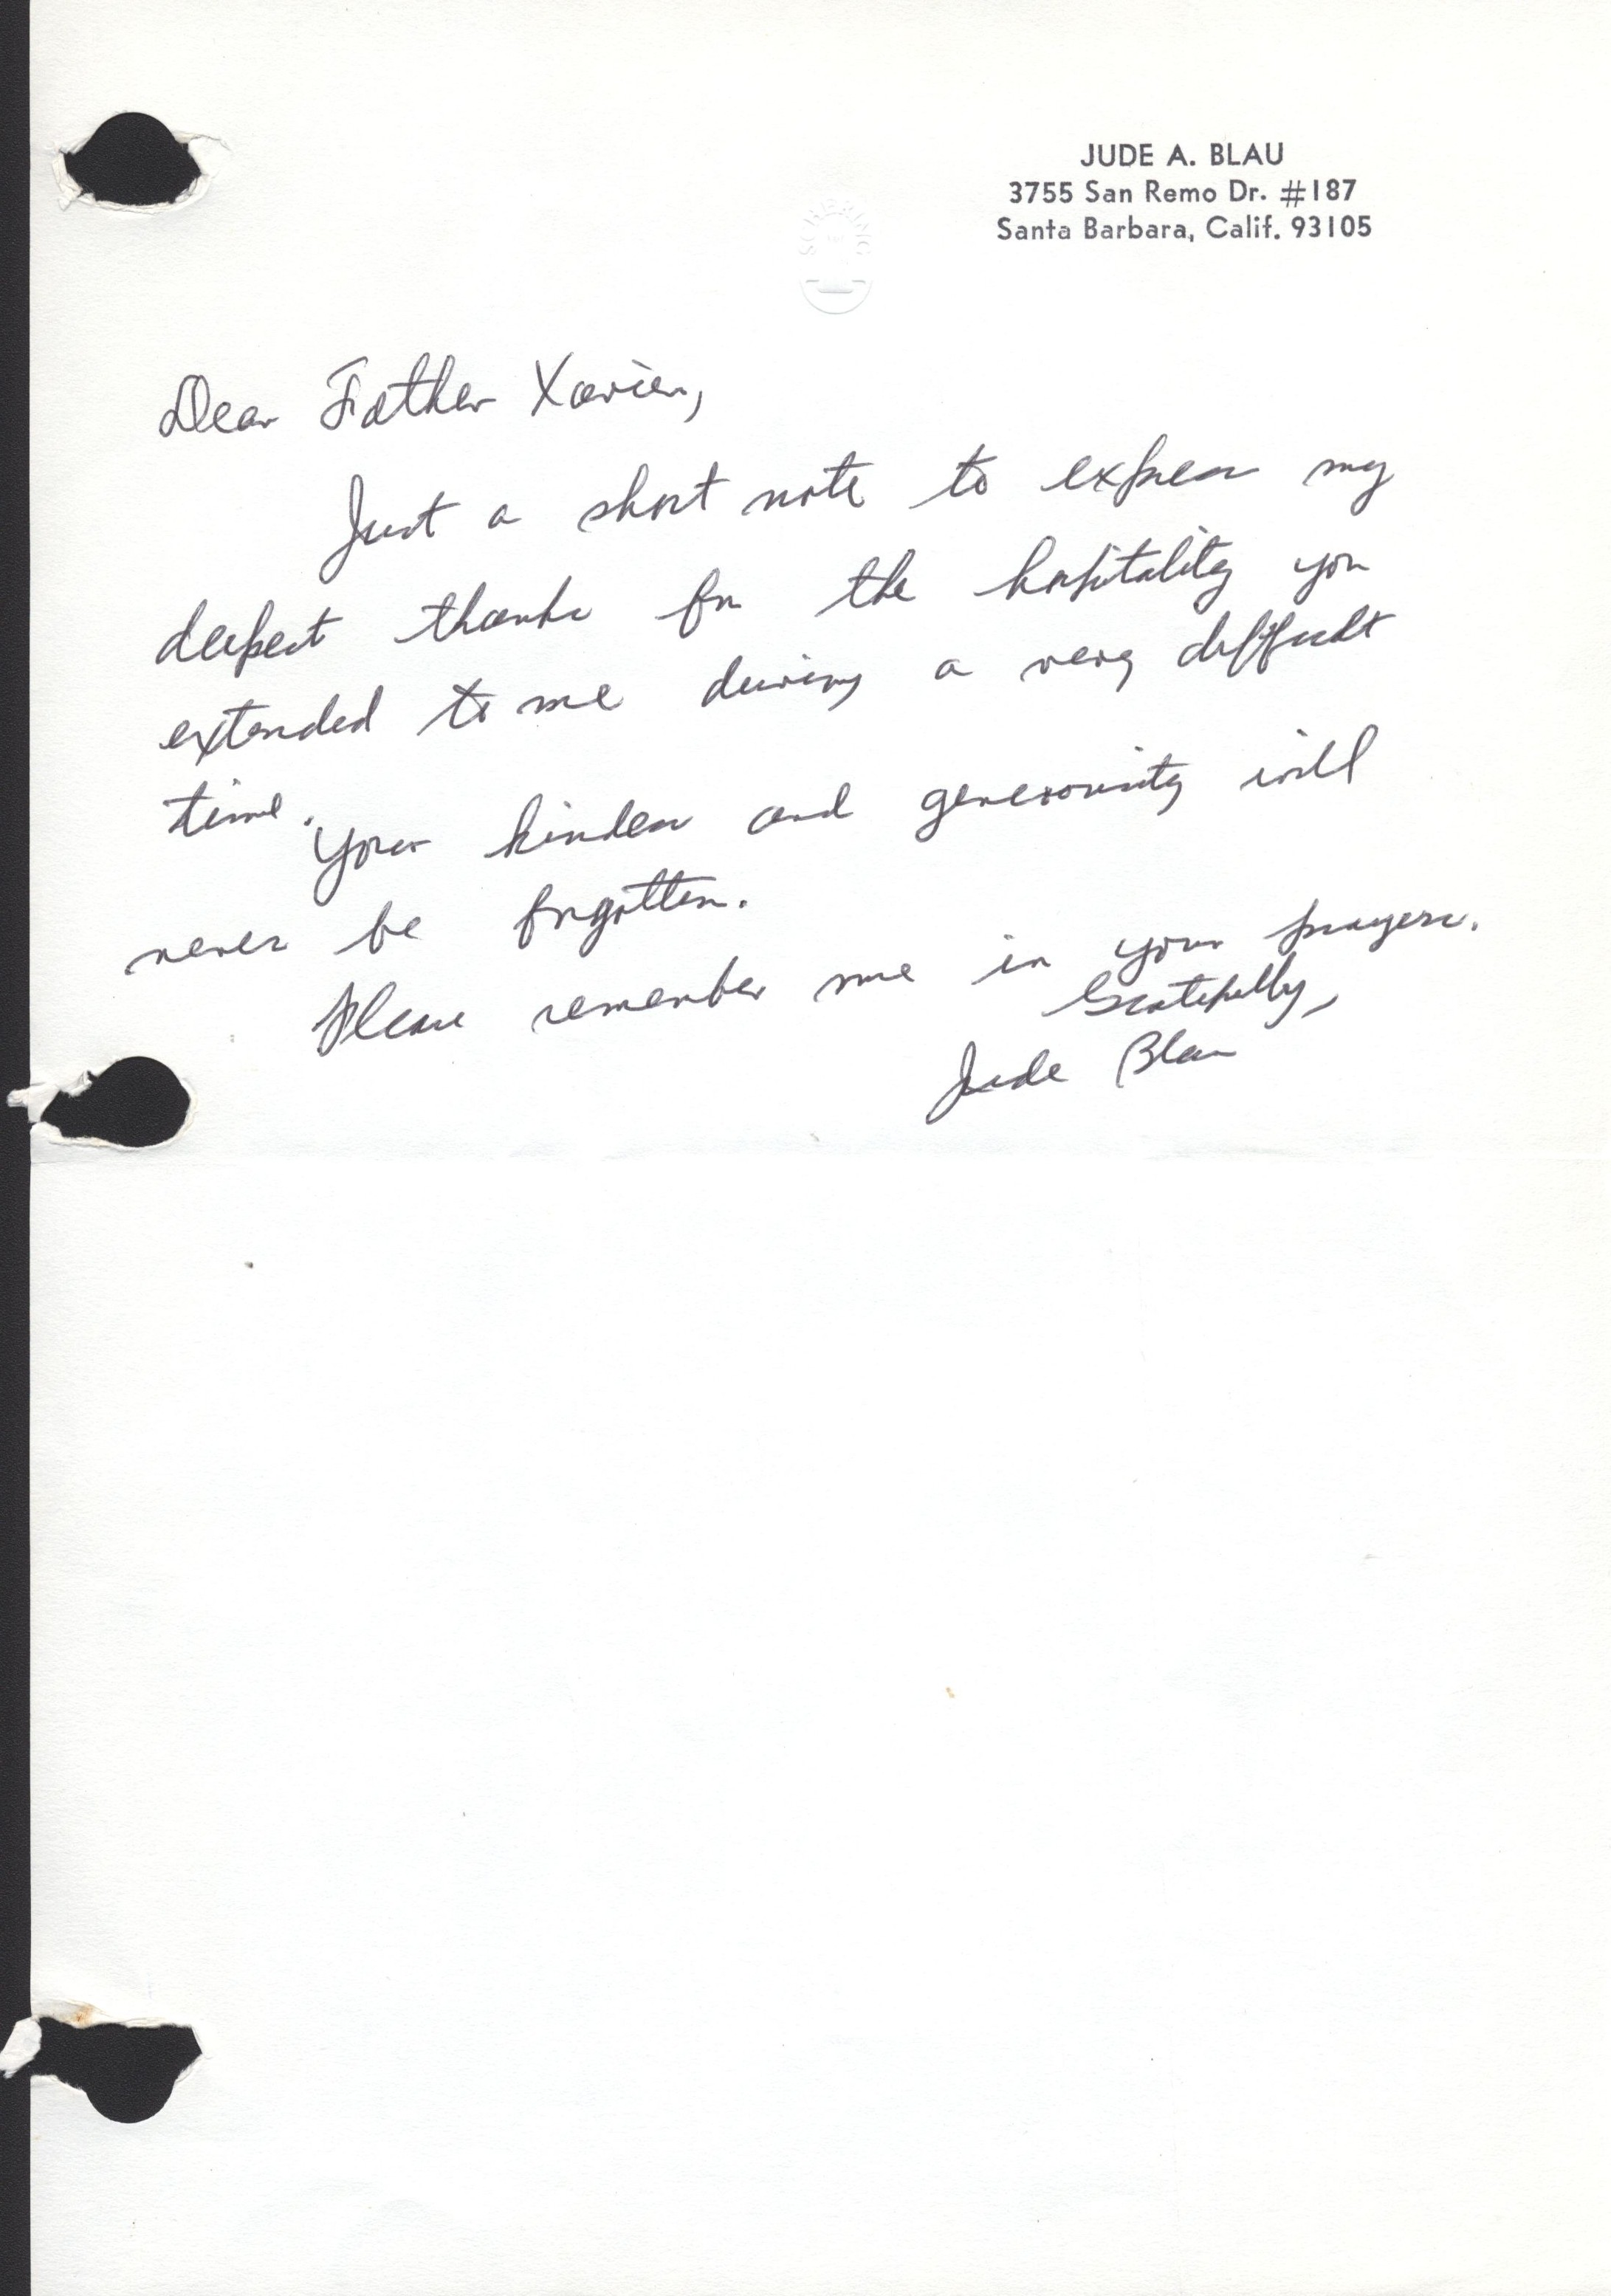 JUDE A. BLAU
3755 San Remo Dr. #187
Santa Barbara, Calif. 93105
SCHERING
Dear Father Xavier,
Just a short note to express my
deepest thanks for the hospitality you
extended to me during a very difficult
time.
Your kindess and generousity will
never be forgotten.
Please remember me in your prayers.
Gratefully,
Jude Blau